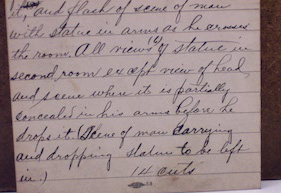 it, and flash of scene of man
with statue in arms as he crosses
the room. All views (2) of statue in
second room except view of head,
and scene where it is partially
concealed in his arms before he
drops it (Scene of man carrying
and dropping statue to be left
in.) 14 cuts